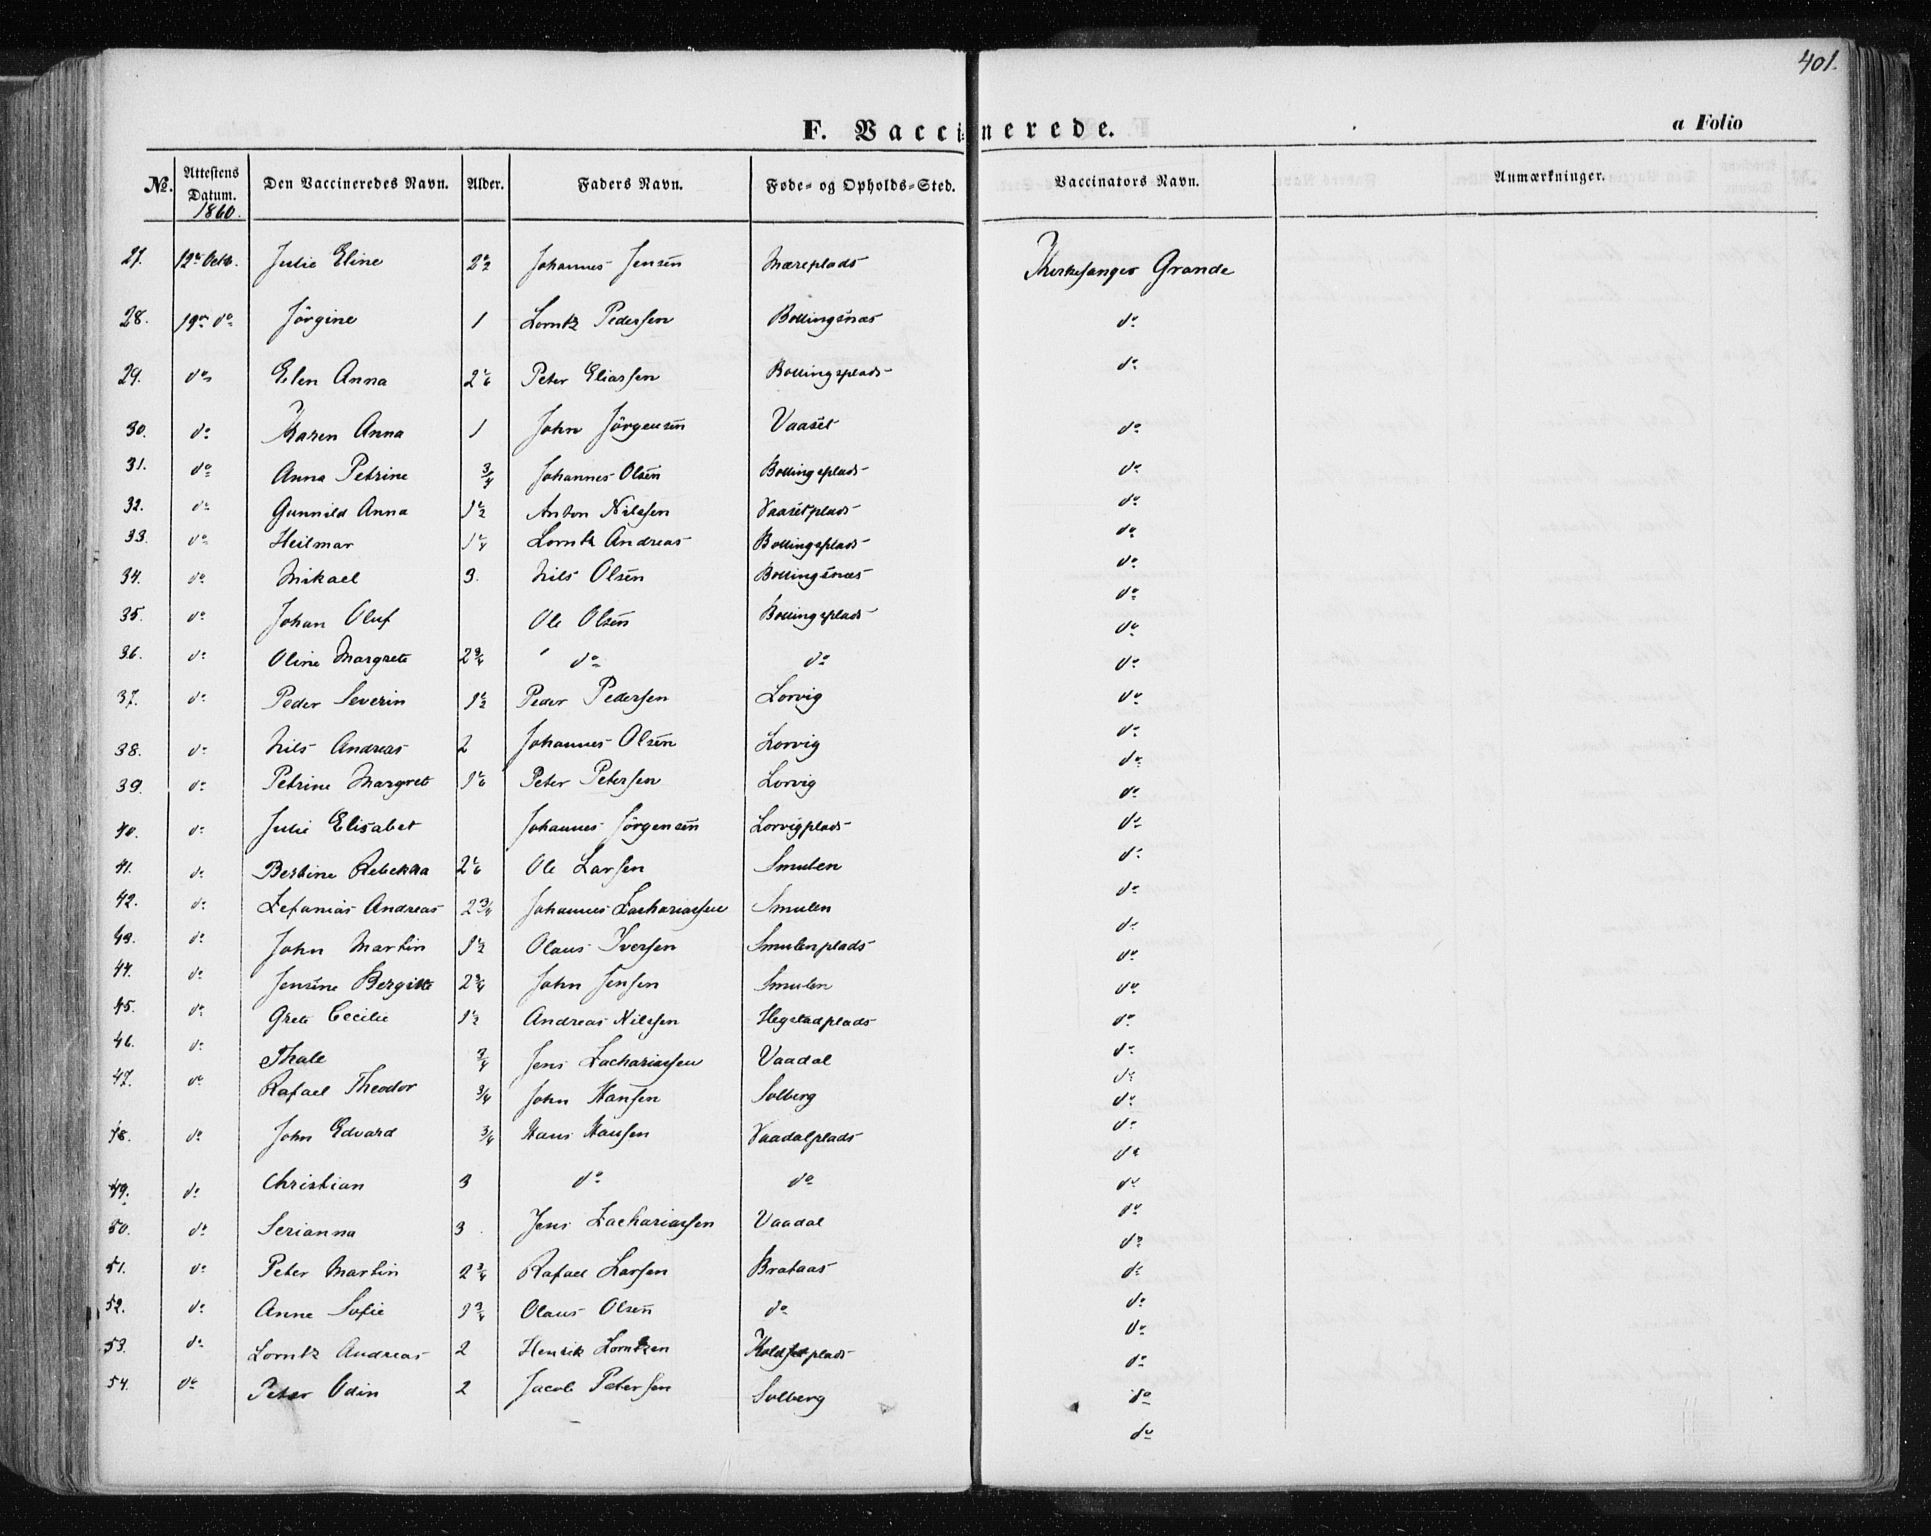 401.
F. Vaccinerede.
a Folio
No. Attestens Datum. Den Vaccineredes Navn. Alder. Faders Navn. Føde- og Opholds-Sted. Vaccinators Navn. Anmærkninger.
1860.
27. 12te Octb. Julie Eline 2½ Johannes Jensen Mæreplads Kirkesanger Grande
28. 19de do Jörgine 1 Lorntz Pedersen Bollingsnæs do
29. do Elen Anna 2 1/6 Peter Eliassen Bollingsplads do
30. do Karen Anna 1 John Jörgensen Vaaset do
31. do Anna Petrine ¾ Johannes Olsen Bollingsplads do
32. do Gunnild Anna 1½ Anton Nilssen Vaasetplads do
33. do Heilmar 1¼ Lorntz Andreas Bollingsplads do
34. do Mikael 3. Nils Olsen Bollingsnæs do
35. do Johan Oluf Ole Olsen Bollingsplads do
36. do Oline Margrete 2¾ do do do
37. do Peder Severin 1½ Peder Pedersen Lorvig do
38. do Nils Andreas 2 Johannes Olsen Lorvig do
39. do Petrine Margret 1 1/6 Peter Petersen Lorvig do
40. do Julie Elisabet Johannes Jörgensen Lorvigplads do
41. do Bertine Rebekka 2 1/6 Ole Larsen Smulen do
42. do Zefanias Andreas 2¾ Johannes Zachariassen Smulen do
43. do John Martin 1½ Olaus Iversen Smulenplads do
44. do Jensine Bergitte 2¾ John Jensen Smulen do
45. do Grete Cecilie 1½ Andreas Nilssen Hegstadplads do
46. do Thale ¾ Jens Zachariassen Vaadal do
47. do Rafael Theodor ¾ John Hansen Solberg do
48. do John Edvard ¾ Hans Hansen Vaadalplads do
49. do Christian 3 do do do
50. do Serianna 3. Jens Zachariassen Vaadal do
51. do Peter Martin 2¾ Rafael Larsen Brataas do
52. do Anne Sofie 1¾ Olaus Olsen do do
53. do Lorntz Andreas 2 Henrik Lorntzen plads do
54. do Peter Odin 2 Jacob Petersen Solberg do